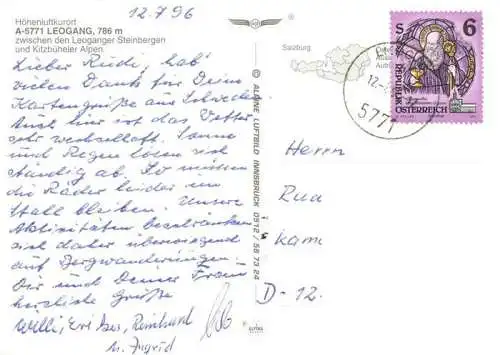 12.7.96
Höhenluftkurort
A-5771 LEOGANG, 786 m
zwischen den Leoganger Steinbergen
und Kitzbüheler Alpen
Lieber Rudi, hab'
vielen Dank für Deine
Kartengrüße aus Schweden
Auch hier ist das Wetter
sehr wechselhaft. Sonne
und Regen lösen sich
ständig ab. So müssen
die Räder leider im
Stall bleiben. Unsere
Aktivitäten beschränken
sich daher überwiegend
auf Bergwanderungen.
Dir und Deiner Frau
herzliche Grüße
Willi, Reinhard
u. Ingrid
© ALPINE LUFTBILD INNSBRUCK 0512/58 73 24
Salzburg
S 6
REPUBLIK
ÖSTERREICH
12.
5771
Herrn
D-12.